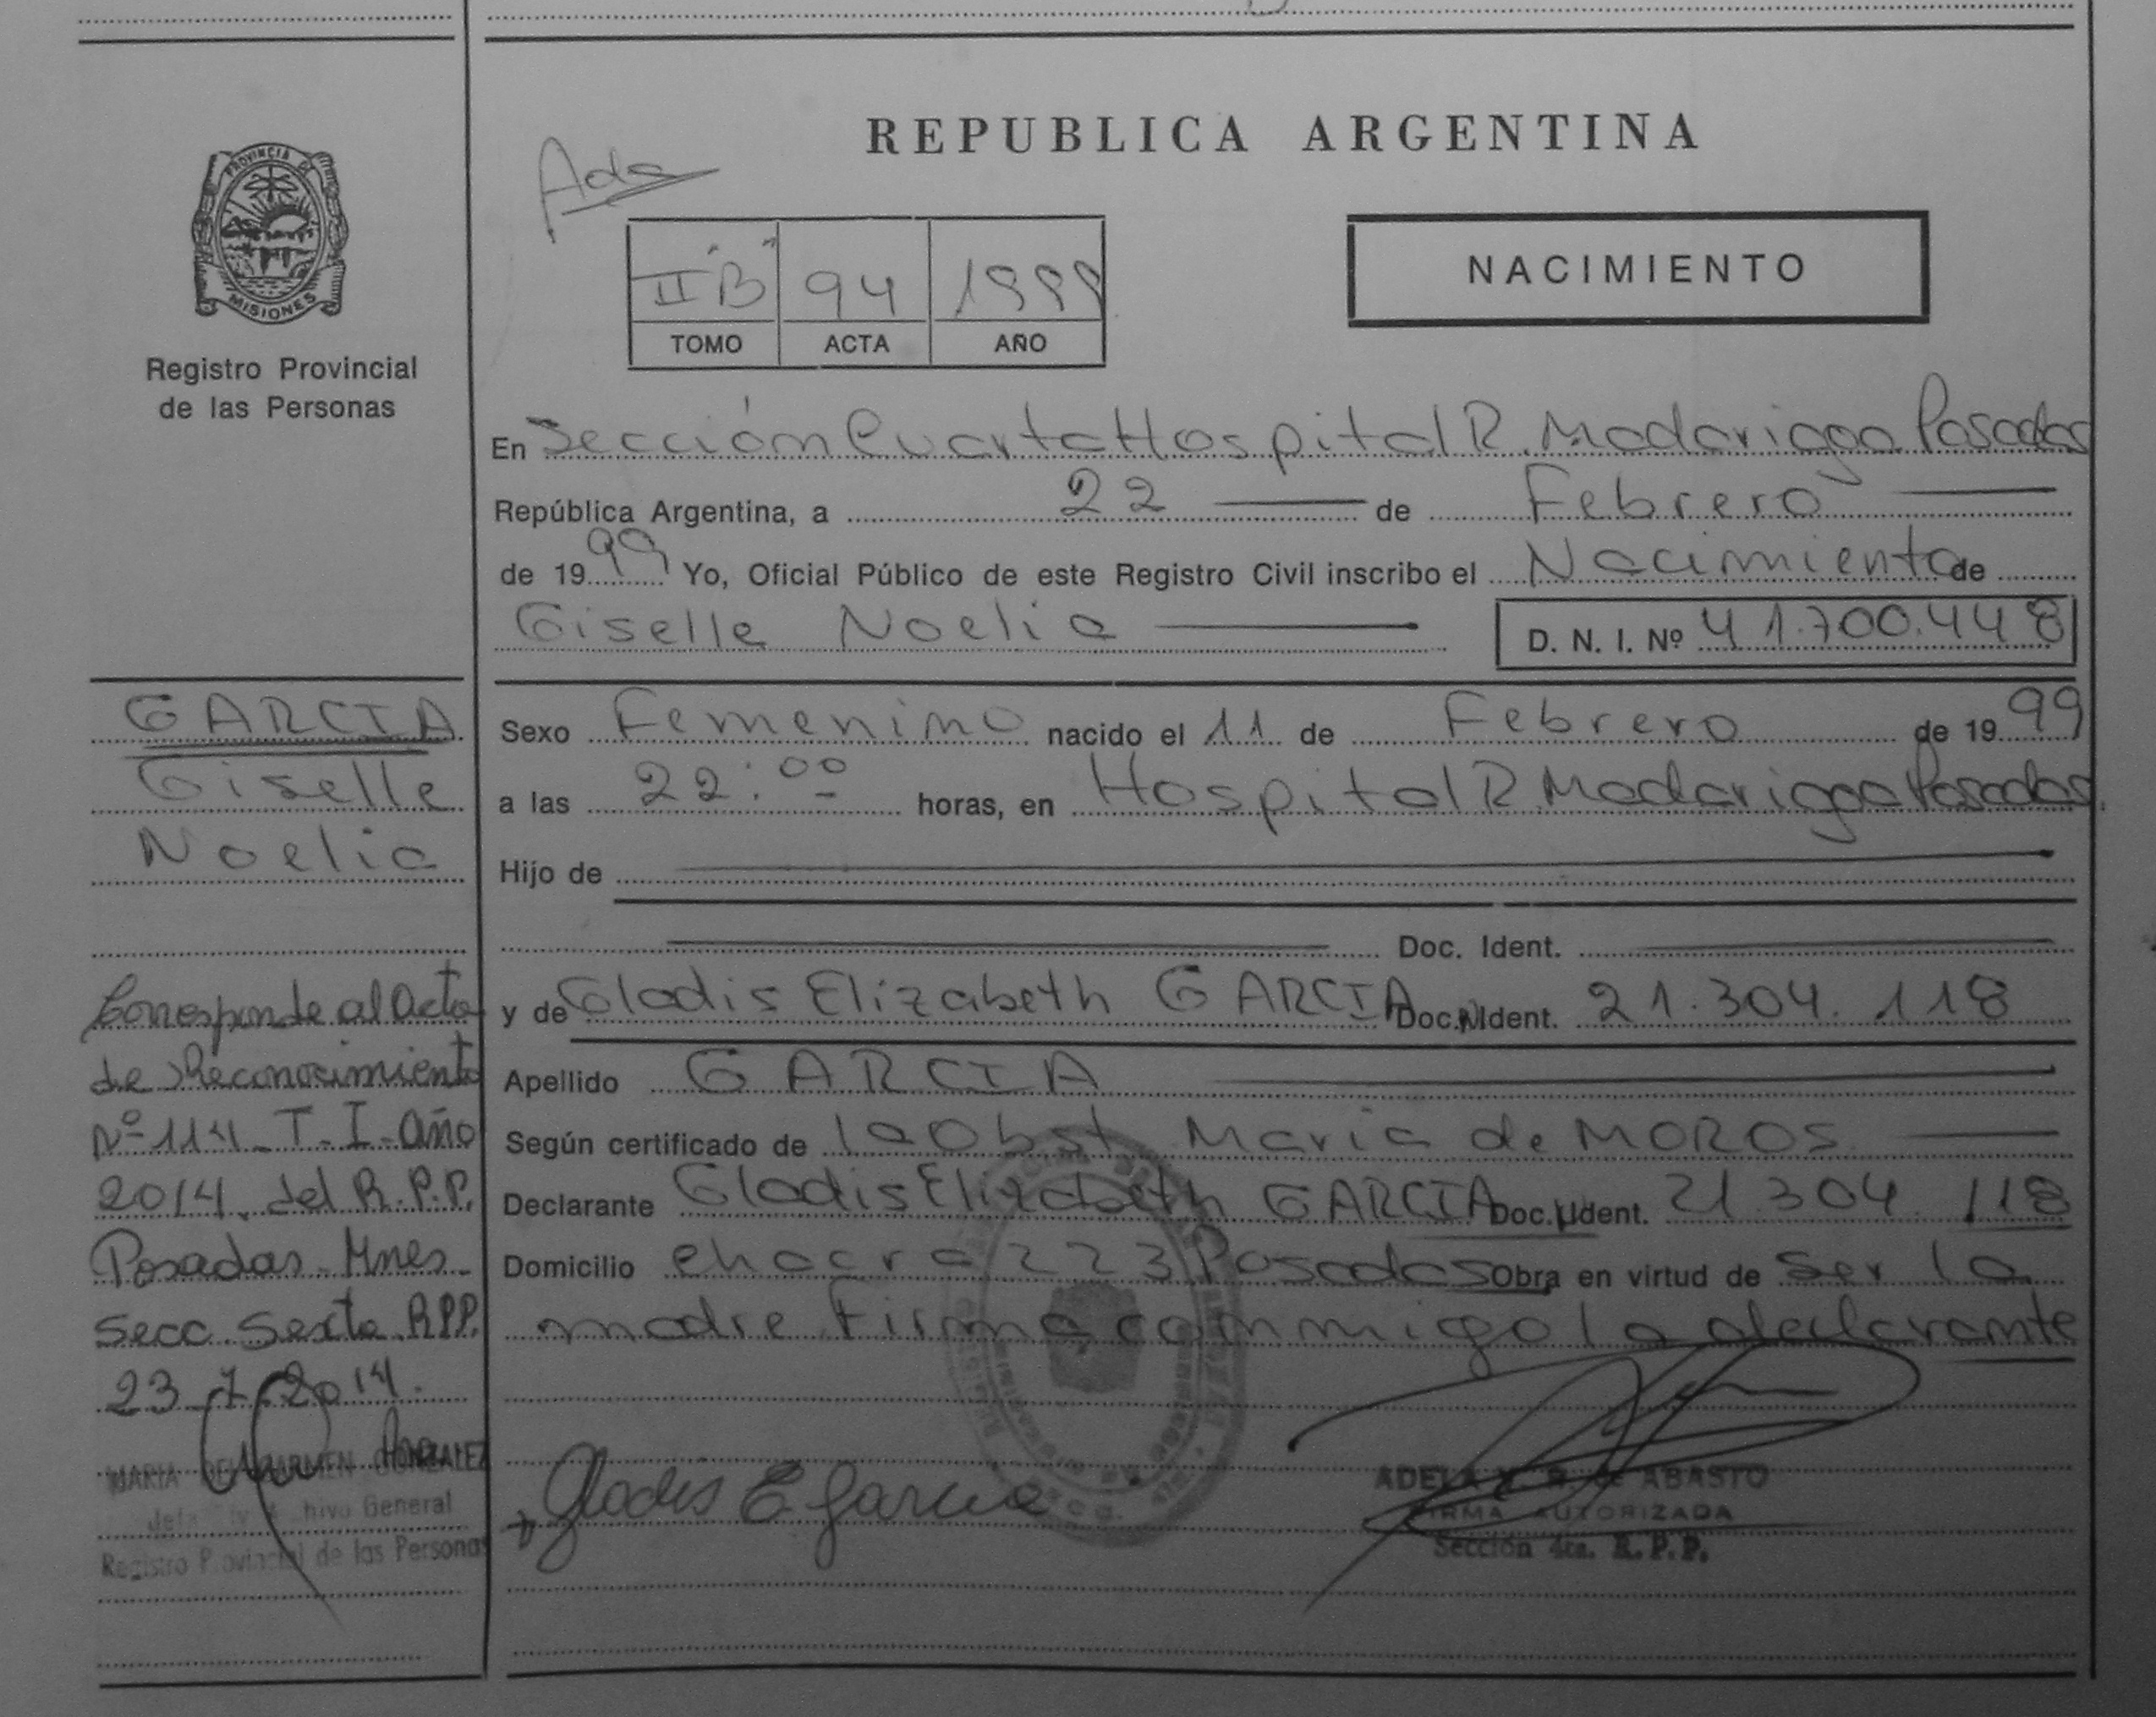 REPUBLICA ARGENTINA
Ada
PROVINCIA DE
MISIONES
Registro Provincial
de las Personas
II "B" 94 1999
TOMO ACTA AÑO
NACIMIENTO
En Sección Cuarta Hospital R. Madariaga Posadas
República Argentina, a 22 de Febrero
de 1999 Yo, Oficial Público de este Registro Civil inscribo el Nacimiento de
Giselle Noelia D. N. I. Nº 41.700.448
GARCIA
Giselle
Noelia
Sexo Femenino nacido el 11 de Febrero de 1999
a las 22:00 horas, en Hospital R. Madariaga Posadas.
Hijo de
Doc. Ident.
y de Gladis Elizabeth GARCIA Doc. Ident. 21.304.118
Apellido GARCIA
Según certificado de la Obst. Maria de MOROS
Declarante Gladis Elizabeth GARCIA Doc. Ident. 21.304.118
Domicilio chacra 223 Posadas Obra en virtud de ser la
madre firma conmigo la declarante
Corresponde al Acta
de Reconocimiento
Nº 114 T. I. Año
2014 del R.P.P.
Posadas Mnes.
Secc. Sexta R.P.P.
23.7.2014.
MARIA DEL CARMEN GONZALEZ
Archivo General
Registro Provincial de las Personas
Gladis E Garcia
ADELA ABASTO
FIRMA AUTORIZADA
Sección 4ta. R.P.P.